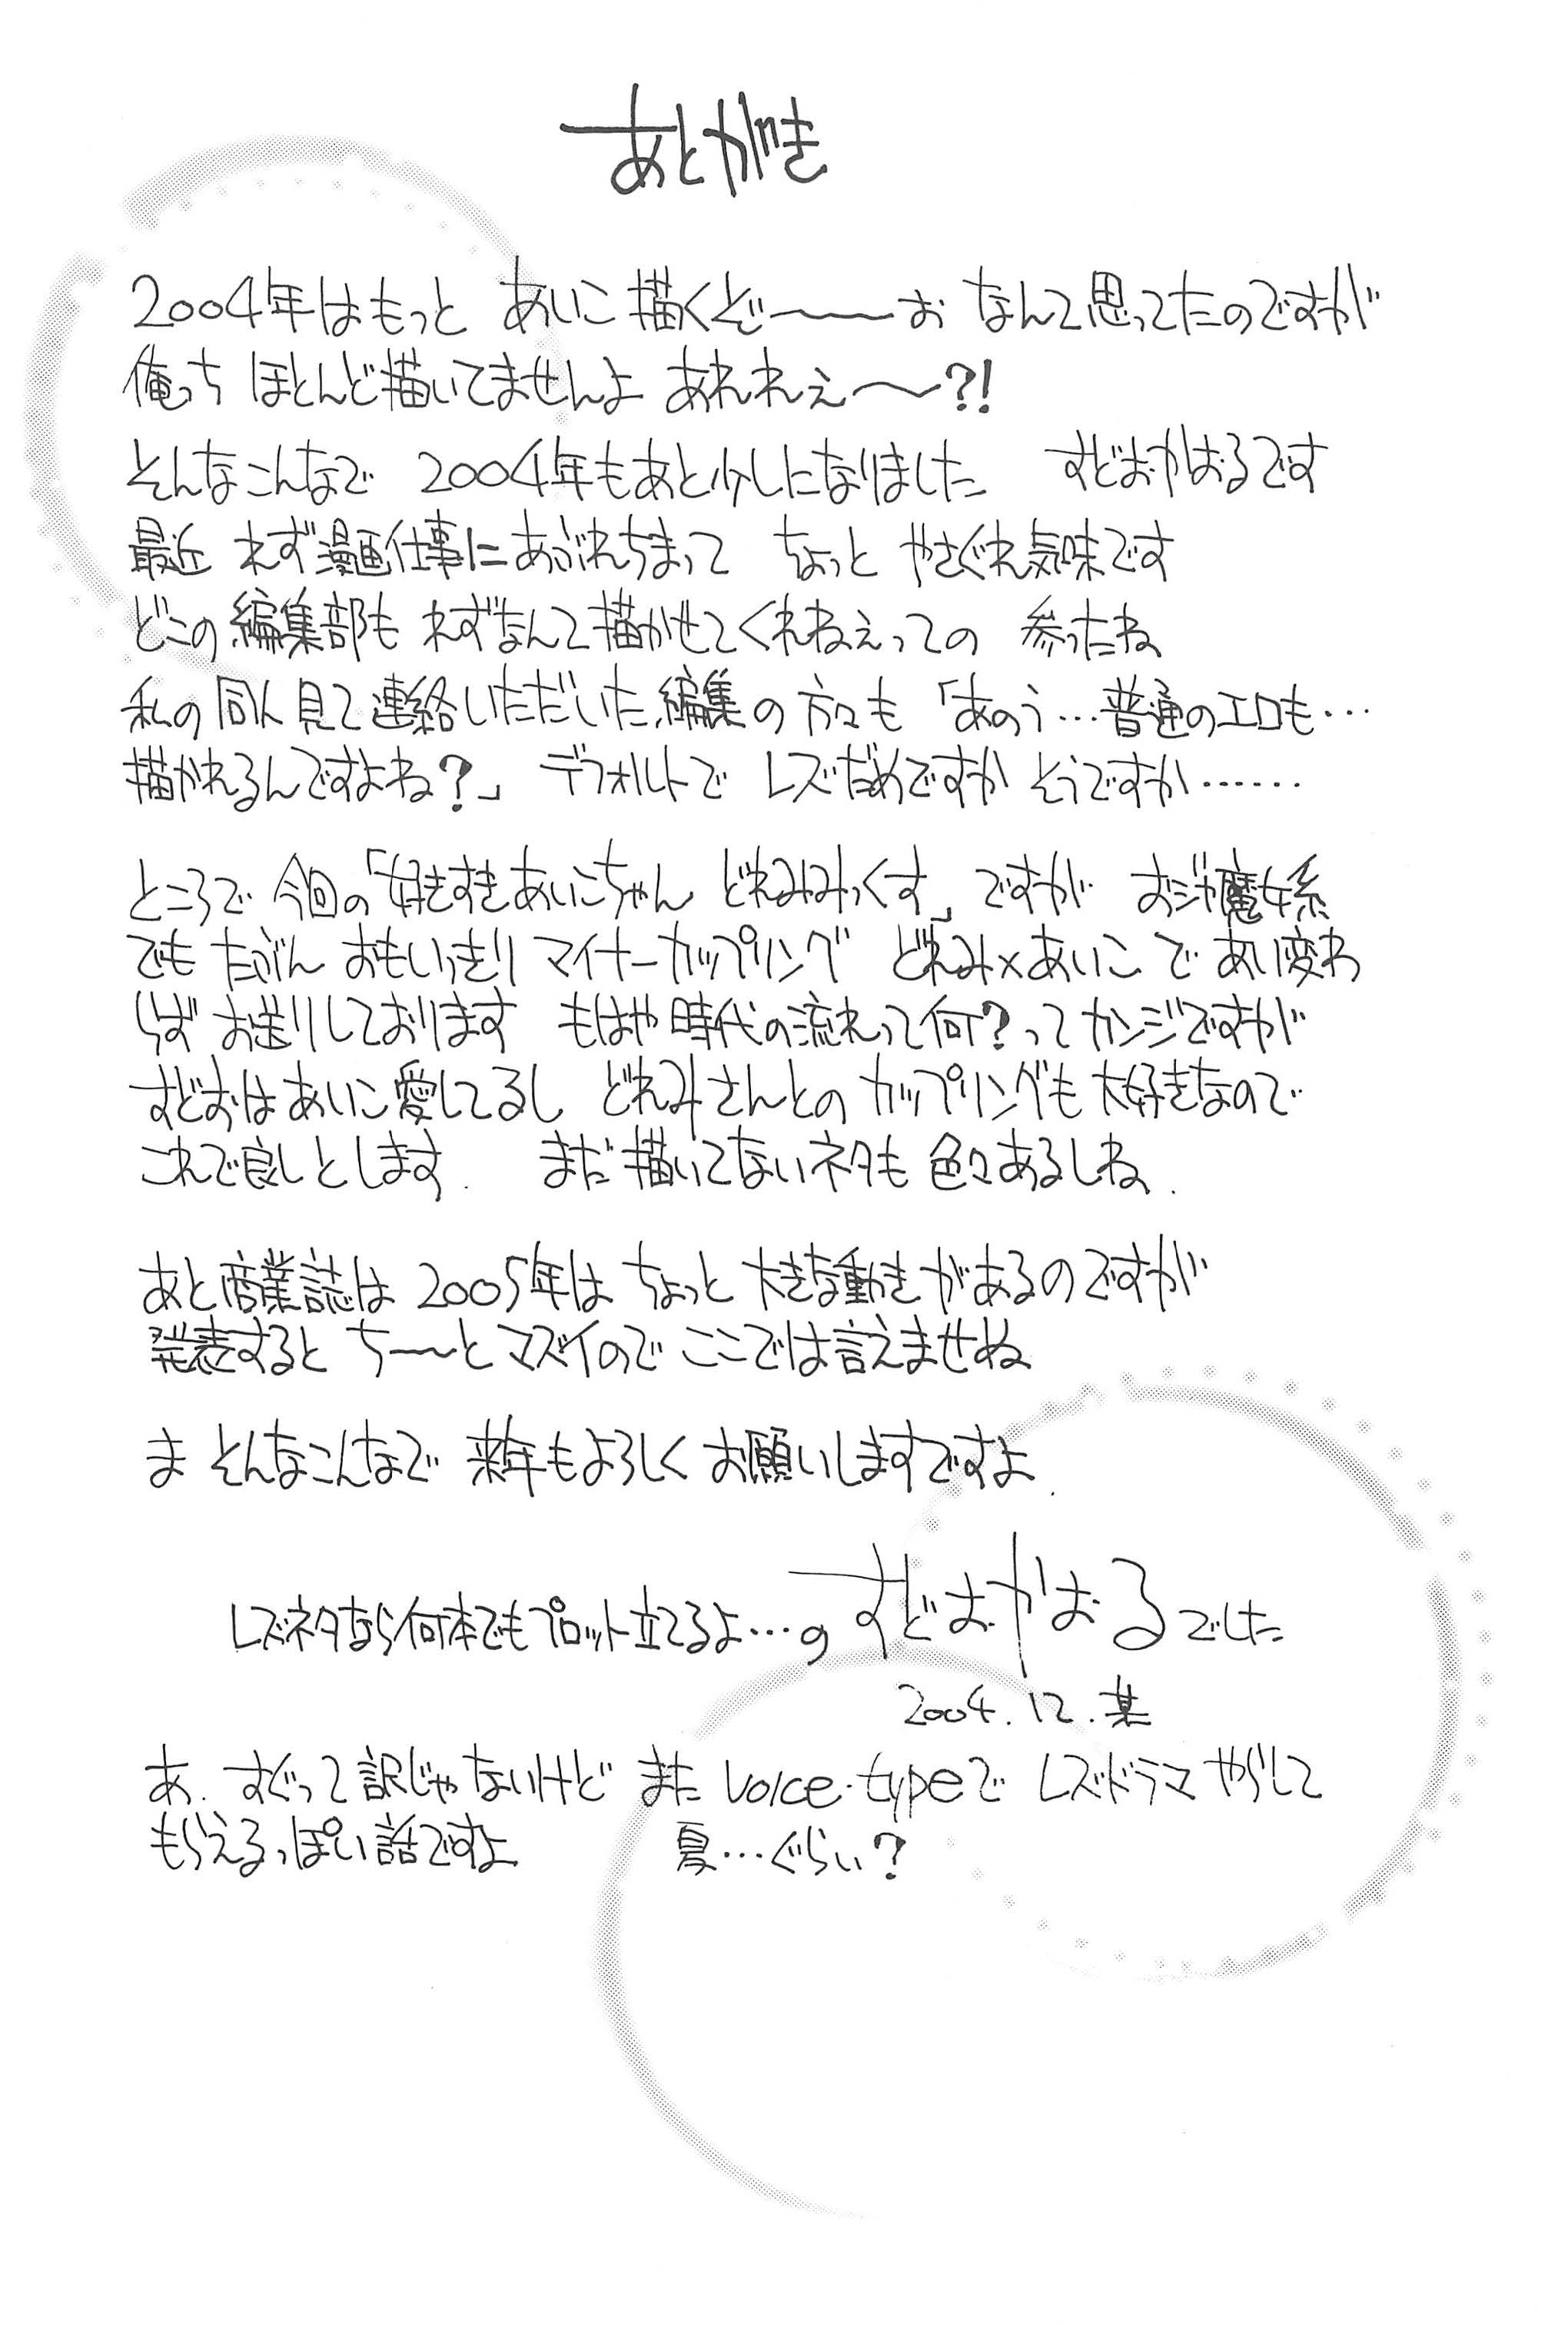 あとがき
2004年はもっと あいこ描くぞ〜〜お なんて思ってたのですが
俺っち ほとんど描いてませんよ あれれぇ〜?!
そんなこんなで 2004年もあと少しになりました すどおかおるです
最近 れず漫画仕事にあぶれちまって ちょっと やさぐれ気味です
どこの編集部も れずなんて描かせてくれねぇっての 参ったね
私の同人見て連絡いただいた編集の方々も「あのう…普通のエロも…
描かれるんですよね?」 デフォルトで レズだめですか そうですか……
ところで 今回の「好きすきあいこちゃん どれみみっくす」ですが おジャ魔女系
でも たぶん おもいっきり マイナーカップリング どれみ×あいこ で あい変わ
らず お送りしております もはや時代の流れって何?ってカンジですが
すどおはあいこ愛してるし どれみさんとの カップリングも大好きなので
これで良しとします. まだ描いてないネタも 色々あるしね.
あと商業誌は 2005年は ちょっと 大きな動きがあるのですが
発表すると ち〜とマズイので ここでは言えませぬ
ま そんなこんなで 来年もよろしく お願いしますですよ.
レズネタなら何本でもプロット立てるよ…の すどおかおるでした
2004.12.某
あ. すぐって訳じゃないけど また voice・typeで レズドラマやらして
もらえるっぽい話ですよ 夏…ぐらい?